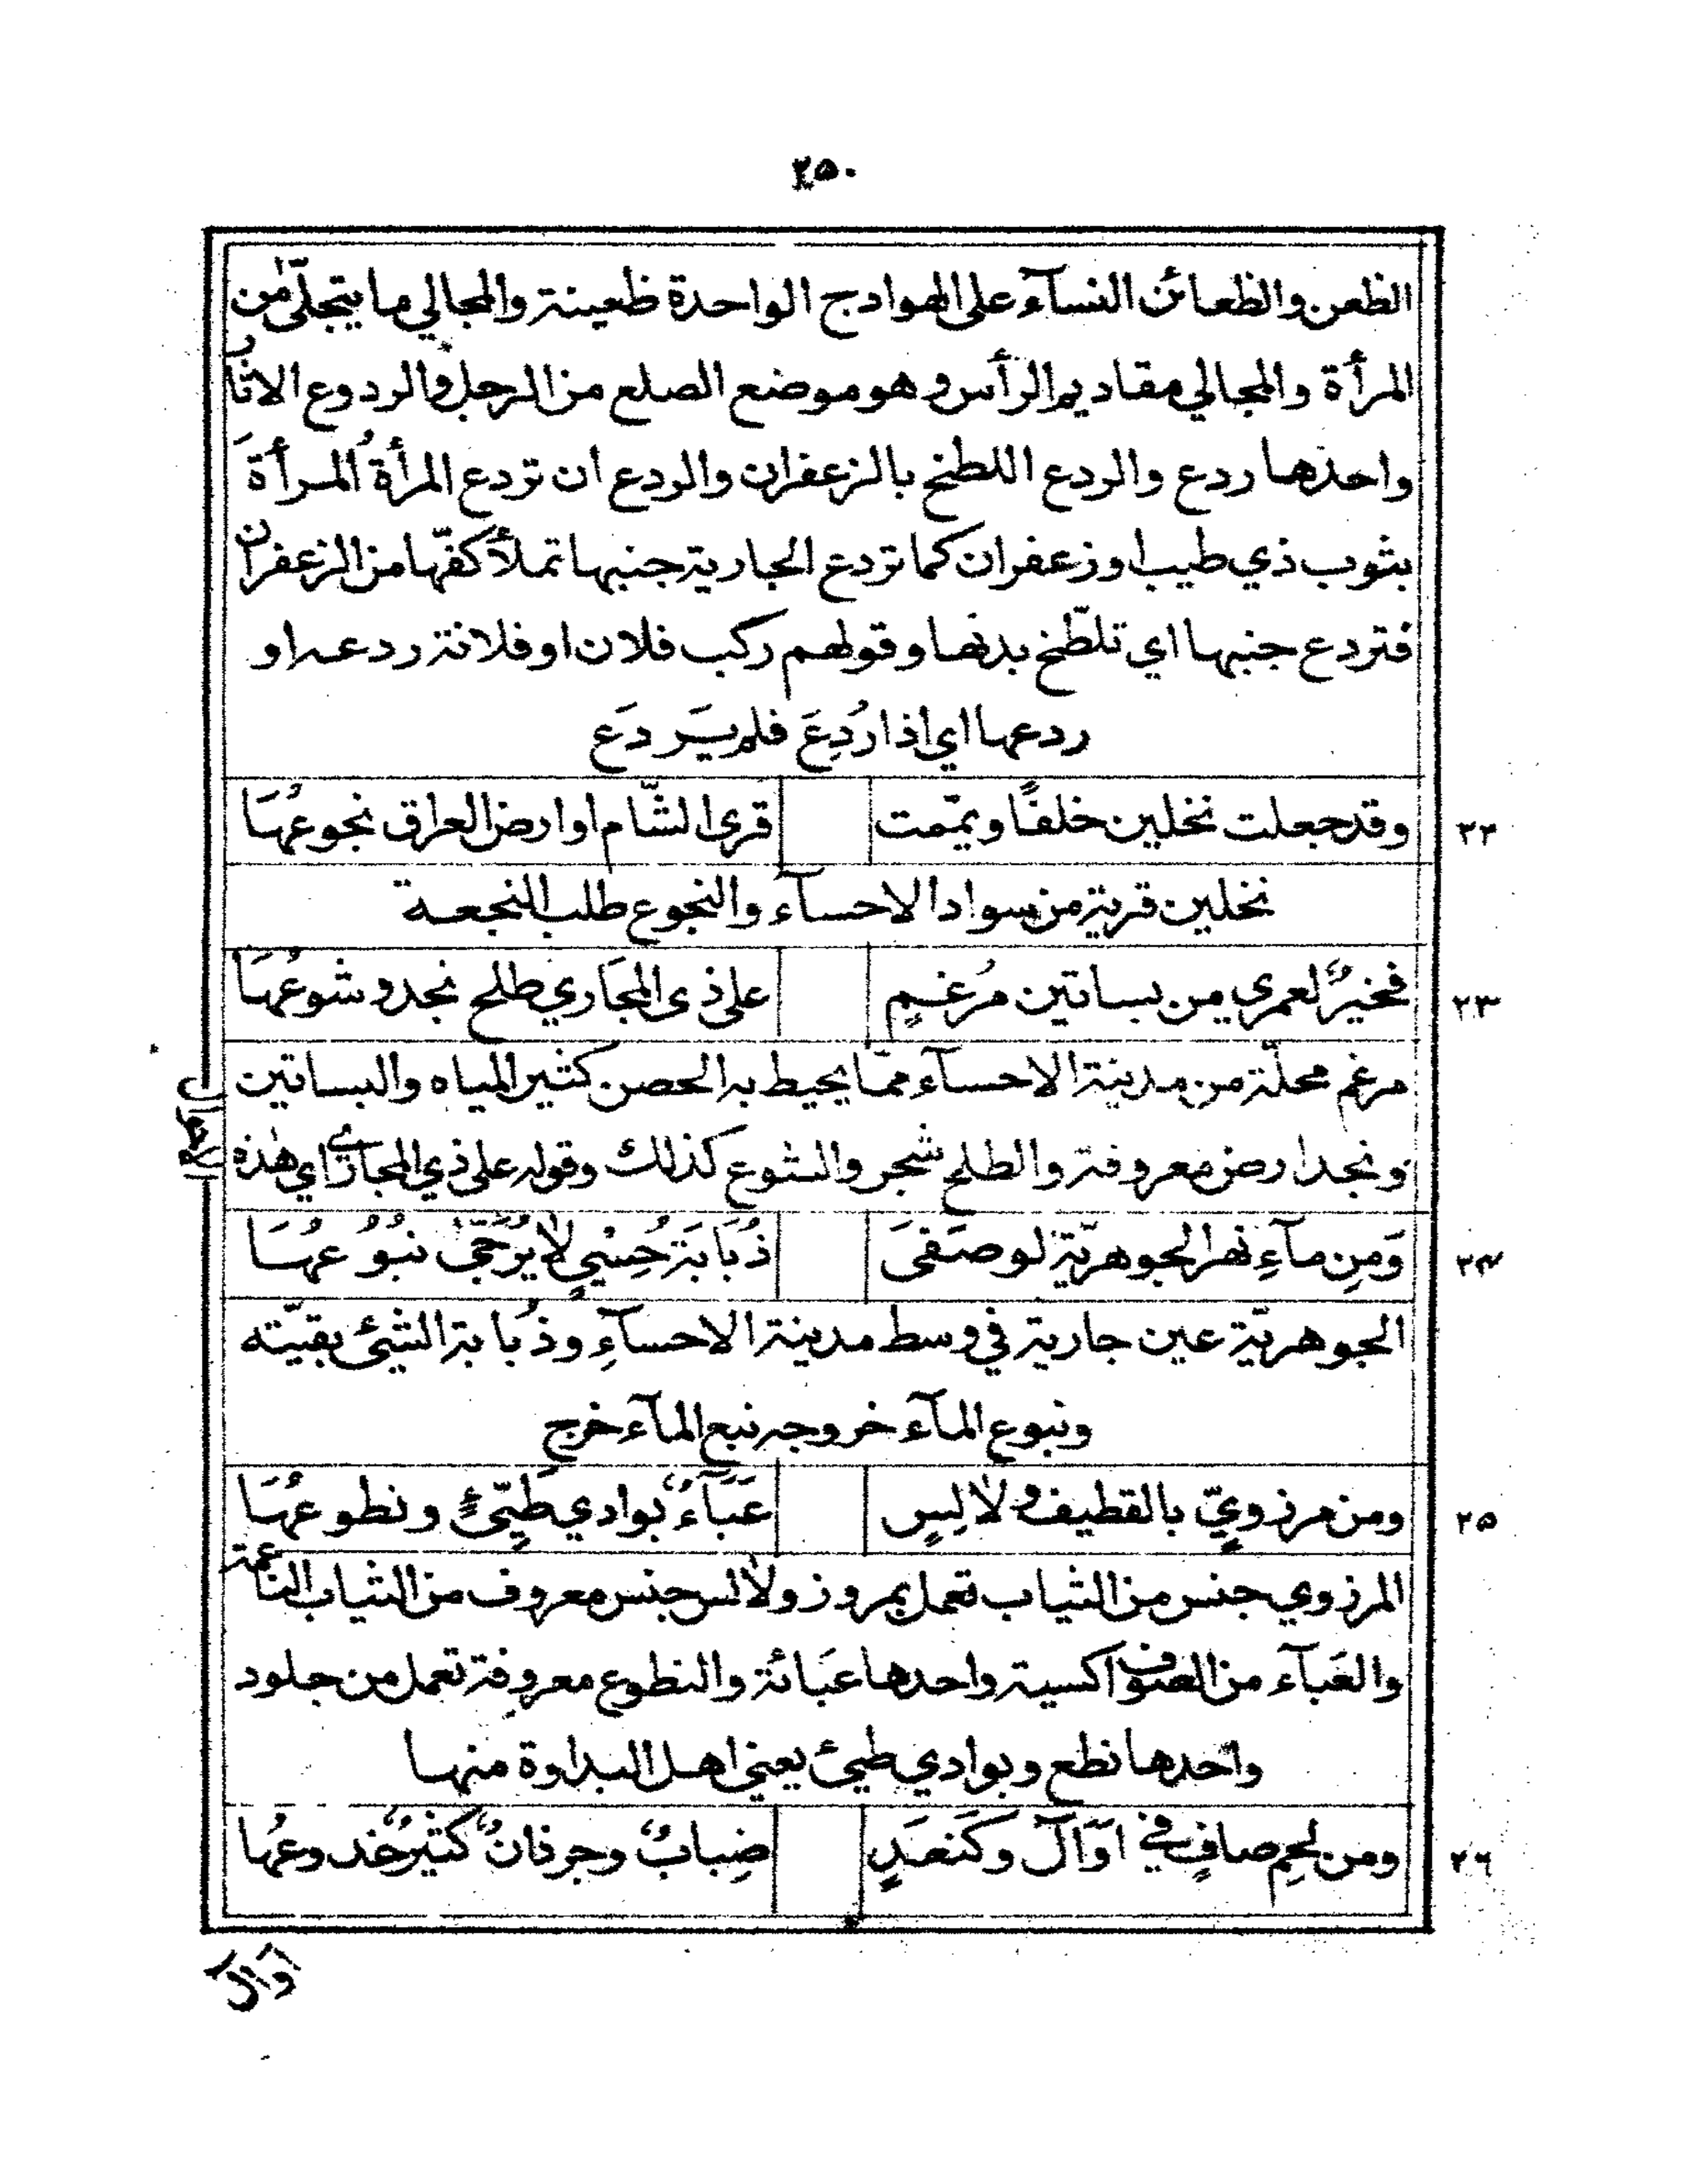 ٢٥٠
الظعن والظعائن النسآء على الهوادج الواحدة ظعينة والمجالي ما يتجلّى من
المرأة والمجالي مقاديم الرأس وهو موضع الصلع من الرجل والردوع الاثار
واحدها ردع والردع اللطخ بالزعفران والردع ان تردع المرأةُ المرأةَ
بثوب ذي طيب او زعفران كما تردع الجارية جنبها تملأ كفّها من الزعفران
فتردع جنبها اي تلطّخ بدنها وقولهم ركب فلان او فلانة ردعه او
ردعها اي اذا رُدِعَ فلم يَردَع
٢٢ وقد جعلت نخلين خلفًا ويمّمت قرى الشّام او ارض العراق نجوعُهَا
نخلين قرية من سواد الاحسآء والنجوع طلب النجعة
٢٣ فخيرٌ لعمري من بساتين مُرغمٍ على ذى المجَاري طلح نجد وشوعُهَا
مرغم محلّة من مدينة الاحسآء ممّا يحيط به الحصن كثير المياه والبساتين
ونجد ارض معروفة والطلح شجر والشوع كذلك وقوله على ذي المجاري اي هذه
٢٤ وَمِن مآءِ نهر الجوهريّة لو صَفَىَ ذُبَابَة حُِسْيٍ لا يُرَجّىٰ نبُوُعُهَا
الجوهريّة عين جارية في وسط مدينة الاحسآءِ وذُبابة الشيئ بقيّته
ونبوع المآء خروجه نبع المآء خرج
٢٥ ومن مرزويٍّ بالقطيف ولالِسٍ عَبَآءٌ بوادي طَيِّئٍ ونطوعُهَا
المرزوي جنس من الثياب تعمل بمروز ولالس جنس معروف من الثياب الناعمة
والعَبآء من الصوف اكسية واحدها عَبَائة والنطوع معروفة تعمل من جلود
واحدها نطع وبوادي طيئ يعني اهل البداوة منها
٢٦ ومن لحمِ صافٍ في اوَآلَ وكَنعَدٍ ضِبابٌ وجرذانٌ كثيرٌ خدوعُها
اوآل